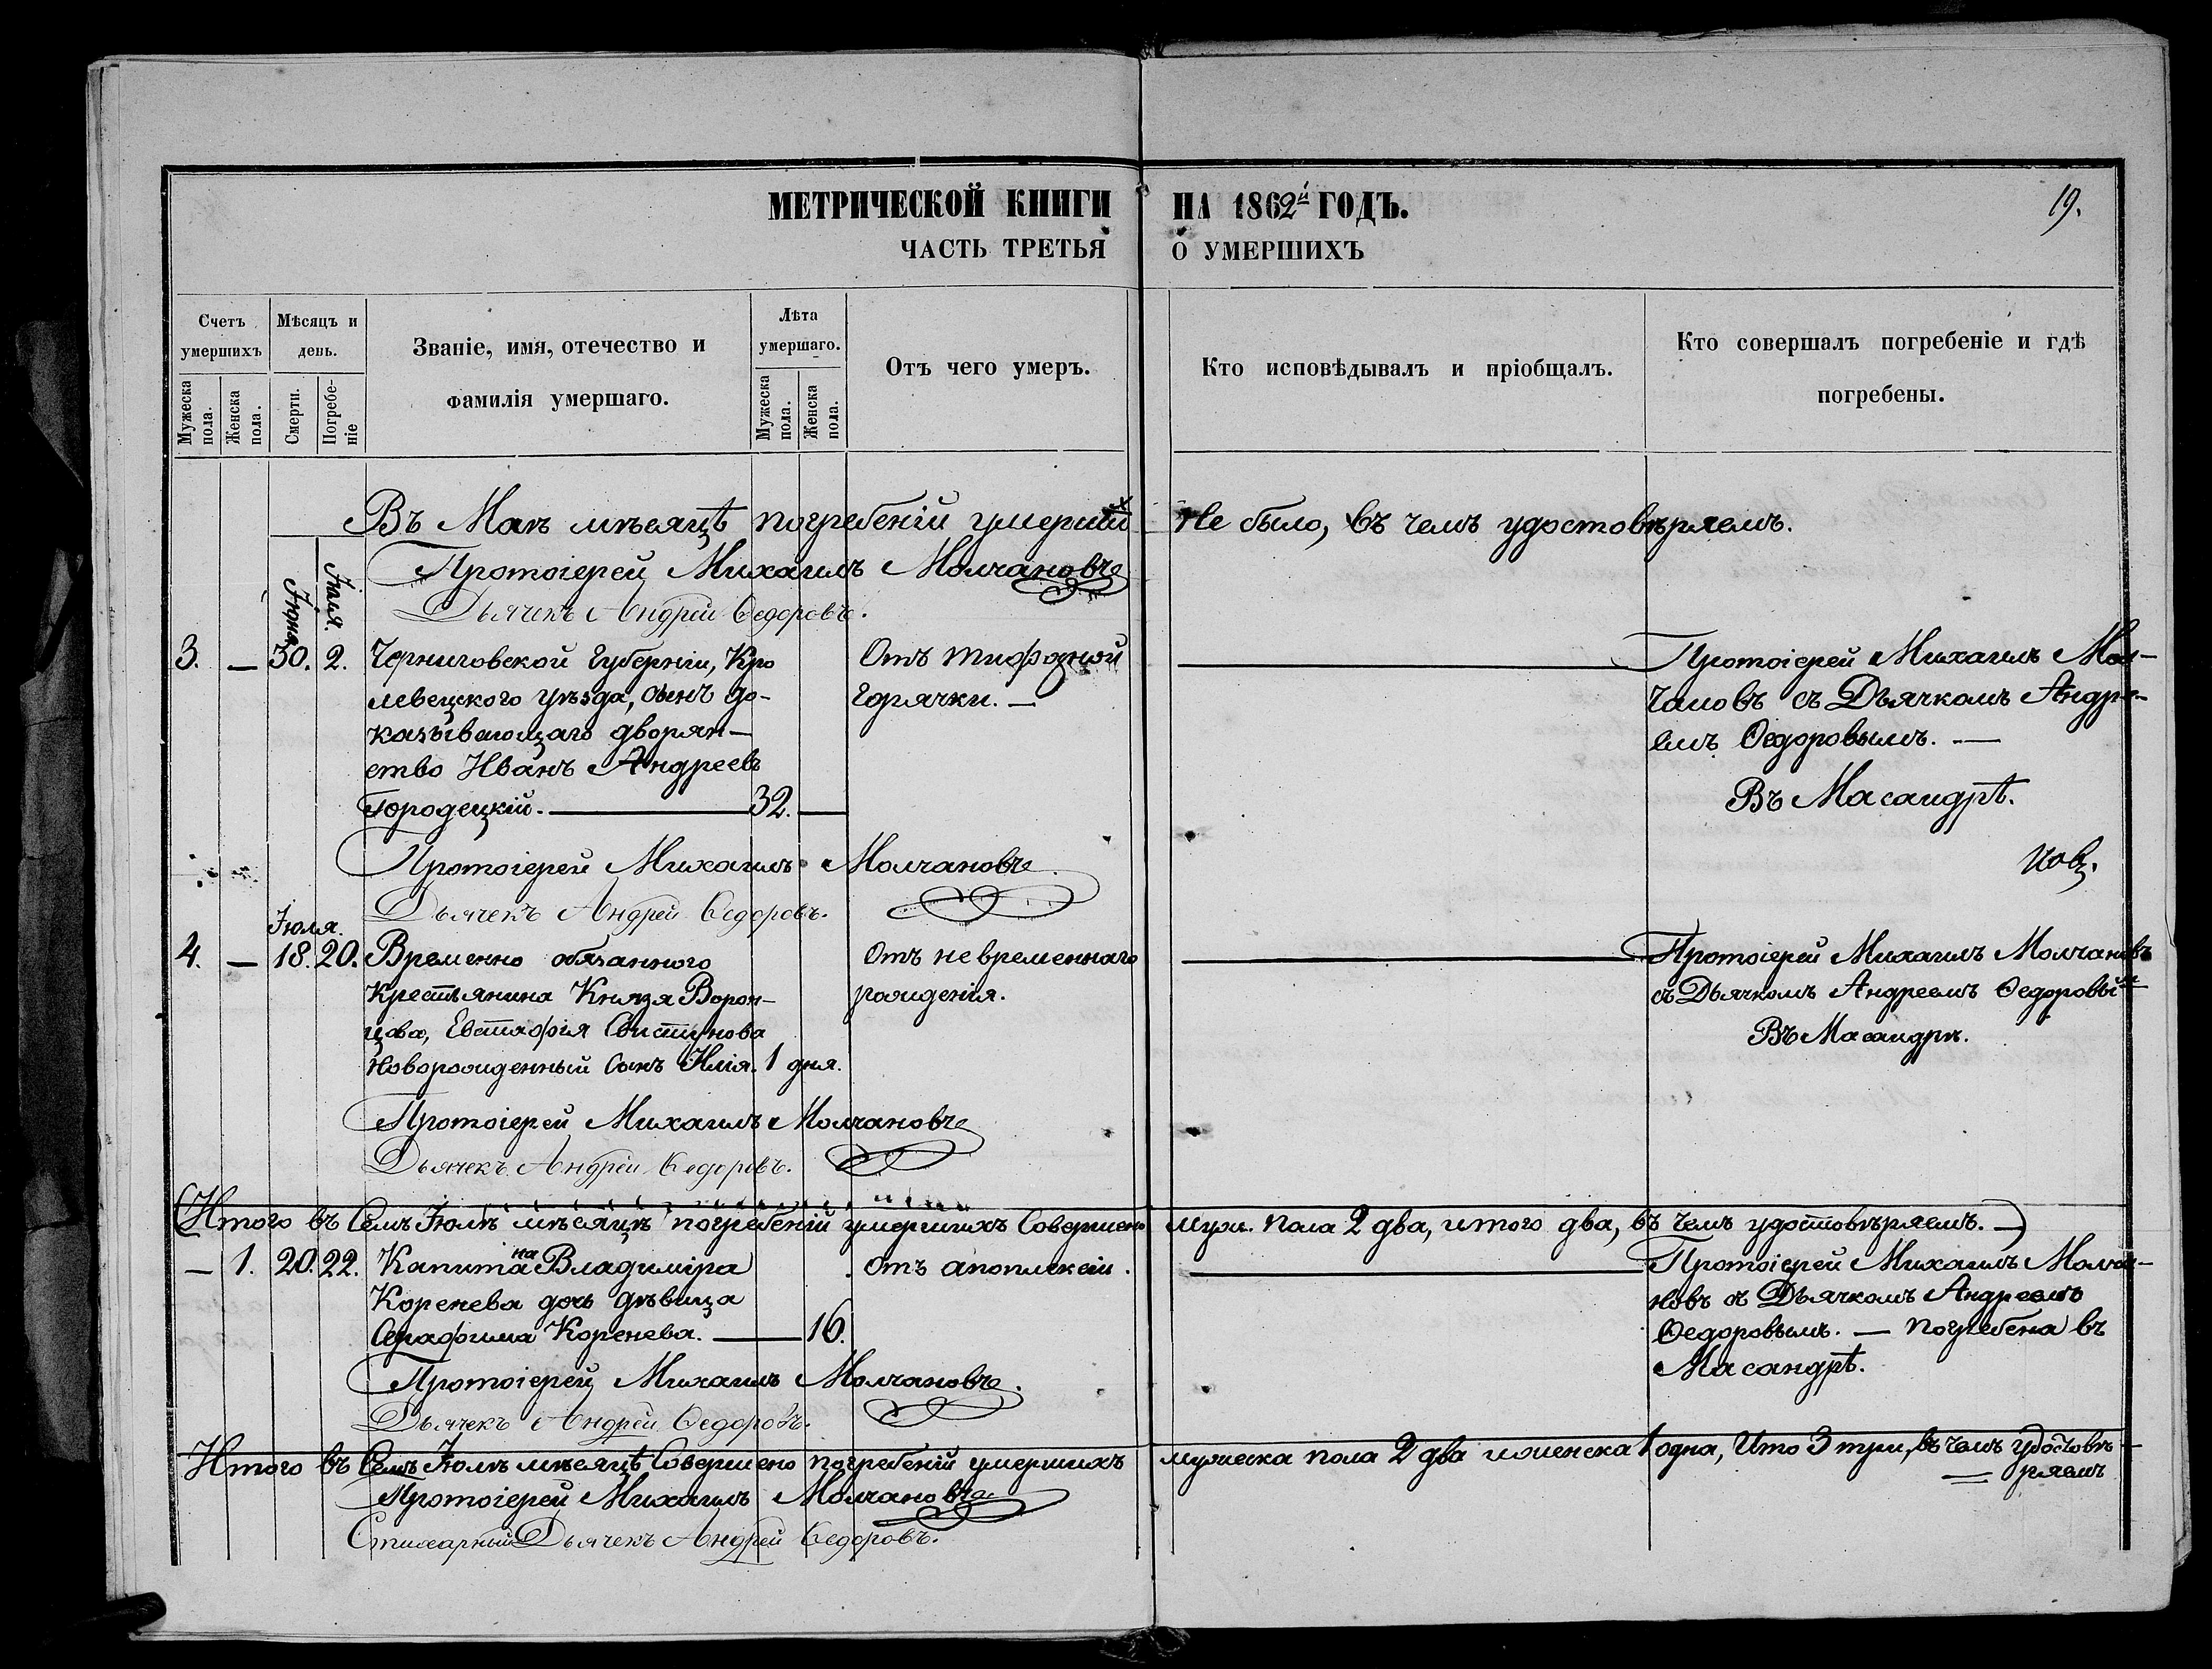 МЕТРИЧЕСКОЙ КНИГИ НА 1862й ГОДЪ.
19.
ЧАСТЬ ТРЕТЬЯ О УМЕРШИХЪ
Счетъ умершихъ
Мужеска пола.
Женска пола.
Мѣсяцъ и день.
Смерти.
Погребеніе
Званіе, имя, отечество и
фамилія умершаго.
Лѣта умершаго.
Мужеска пола.
Женска пола.
Отъ чего умеръ.
Кто исповѣдывалъ и пріобщалъ.
Кто совершалъ погребеніе и гдѣ
погребены.
Въ Маѣ мѣсяцѣ погребеній умершихъ Не было, въ чемъ удостовѣряемъ.
Протоіерей Михаилъ Молчановъ
Дьячекъ Андрей Ѳедоровъ.
Іюня Іюля.
3. — 30. 2. Черниговской Губерніи, Кро
левецкого уѣзда, сынъ до-
казывающаго дворян-
ство Иванъ Андреевъ
Городецкій. — 32. —
Отъ тифозной
горячки. —
Протоіерей Михаилъ Мол-
чановъ съ Дьячкомъ Андре-
емъ Ѳедоровымъ. —
Въ Масандрѣ.
Протоіерей Михаилъ Молчановъ
Дьячекъ Андрей Ѳедоровъ.
Іюля.
4. — 18. 20. Временно обязанного
Крестьянина Князя Ворон-
цова, Евстафія Свистунова
Новорожденный Сынъ Илія. 1 дня.
Отъ невременнаго
рожденія.
Протоіерей Михаилъ Молчановъ
съ Дьячкомъ Андреемъ Ѳедоровым
Въ Масандрѣ.
Протоіерей Михаилъ Молчановъ
Дьячекъ Андрей Ѳедоровъ.
(Итого въ Семъ Іюлѣ мѣсяцѣ погребеній умершихъ Совершено муж. пола 2 два, итого два, въ чемъ удостовѣряемъ. —)
— 1. 20. 22. Капитана Владиміра
Коренева дочь дѣвица
Серафима Коренева. — 16.
Отъ апоплексіи.
Протоіерей Михаилъ Молча-
новъ съ Дьячкомъ Андреемъ
Ѳедоровымъ. — Погребена въ
Масандрѣ.
Протоіерей Михаилъ Молчановъ.
Дьячекъ Андрей Ѳедоровъ.
Итого въ Семъ Іюлѣ мѣсяцѣ Совершено погребеній умершихъ мужеска пола 2 два и женска 1 одна, Ито 3 три, въ чемъ удостовѣ-
ряемъ
Протоіерей Михаилъ Молчановъ
Стихарный Дьячекъ Андрей Ѳедоровъ.